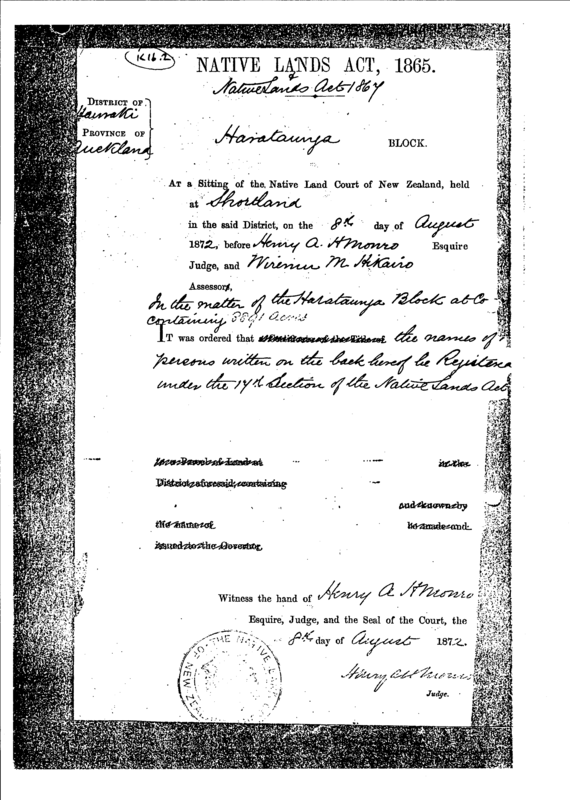 K16.2
NATIVE LANDS ACT, 1865.
& Native Lands Act 1867
DISTRICT OF
Hauraki
PROVINCE OF
Auckland
Harataunga BLOCK.
AT a Sitting of the Native Land Court of New Zealand, held
at Shortland
in the said District, on the 8th day of August
1872, before Henry A. H Monro Esquire
Judge, and Wiremu M. Hikairo
Assessor,
In the matter of the Harataunga Block at Co
containing acres
IT was ordered that the names of
persons written on the back hereof be Registered
under the 17th Section of the Native Lands Act
it or a Parcel of Land at in the
District aforesaid, containing
and known by
the name of be made and
issued to the Governor.
Witness the hand of Henry A H Monro
Esquire, Judge, and the Seal of the Court, the
8th day of August 1872.
Henry A H Monro
Judge.
OF THE NATIVE LAND
OF NEW ZE